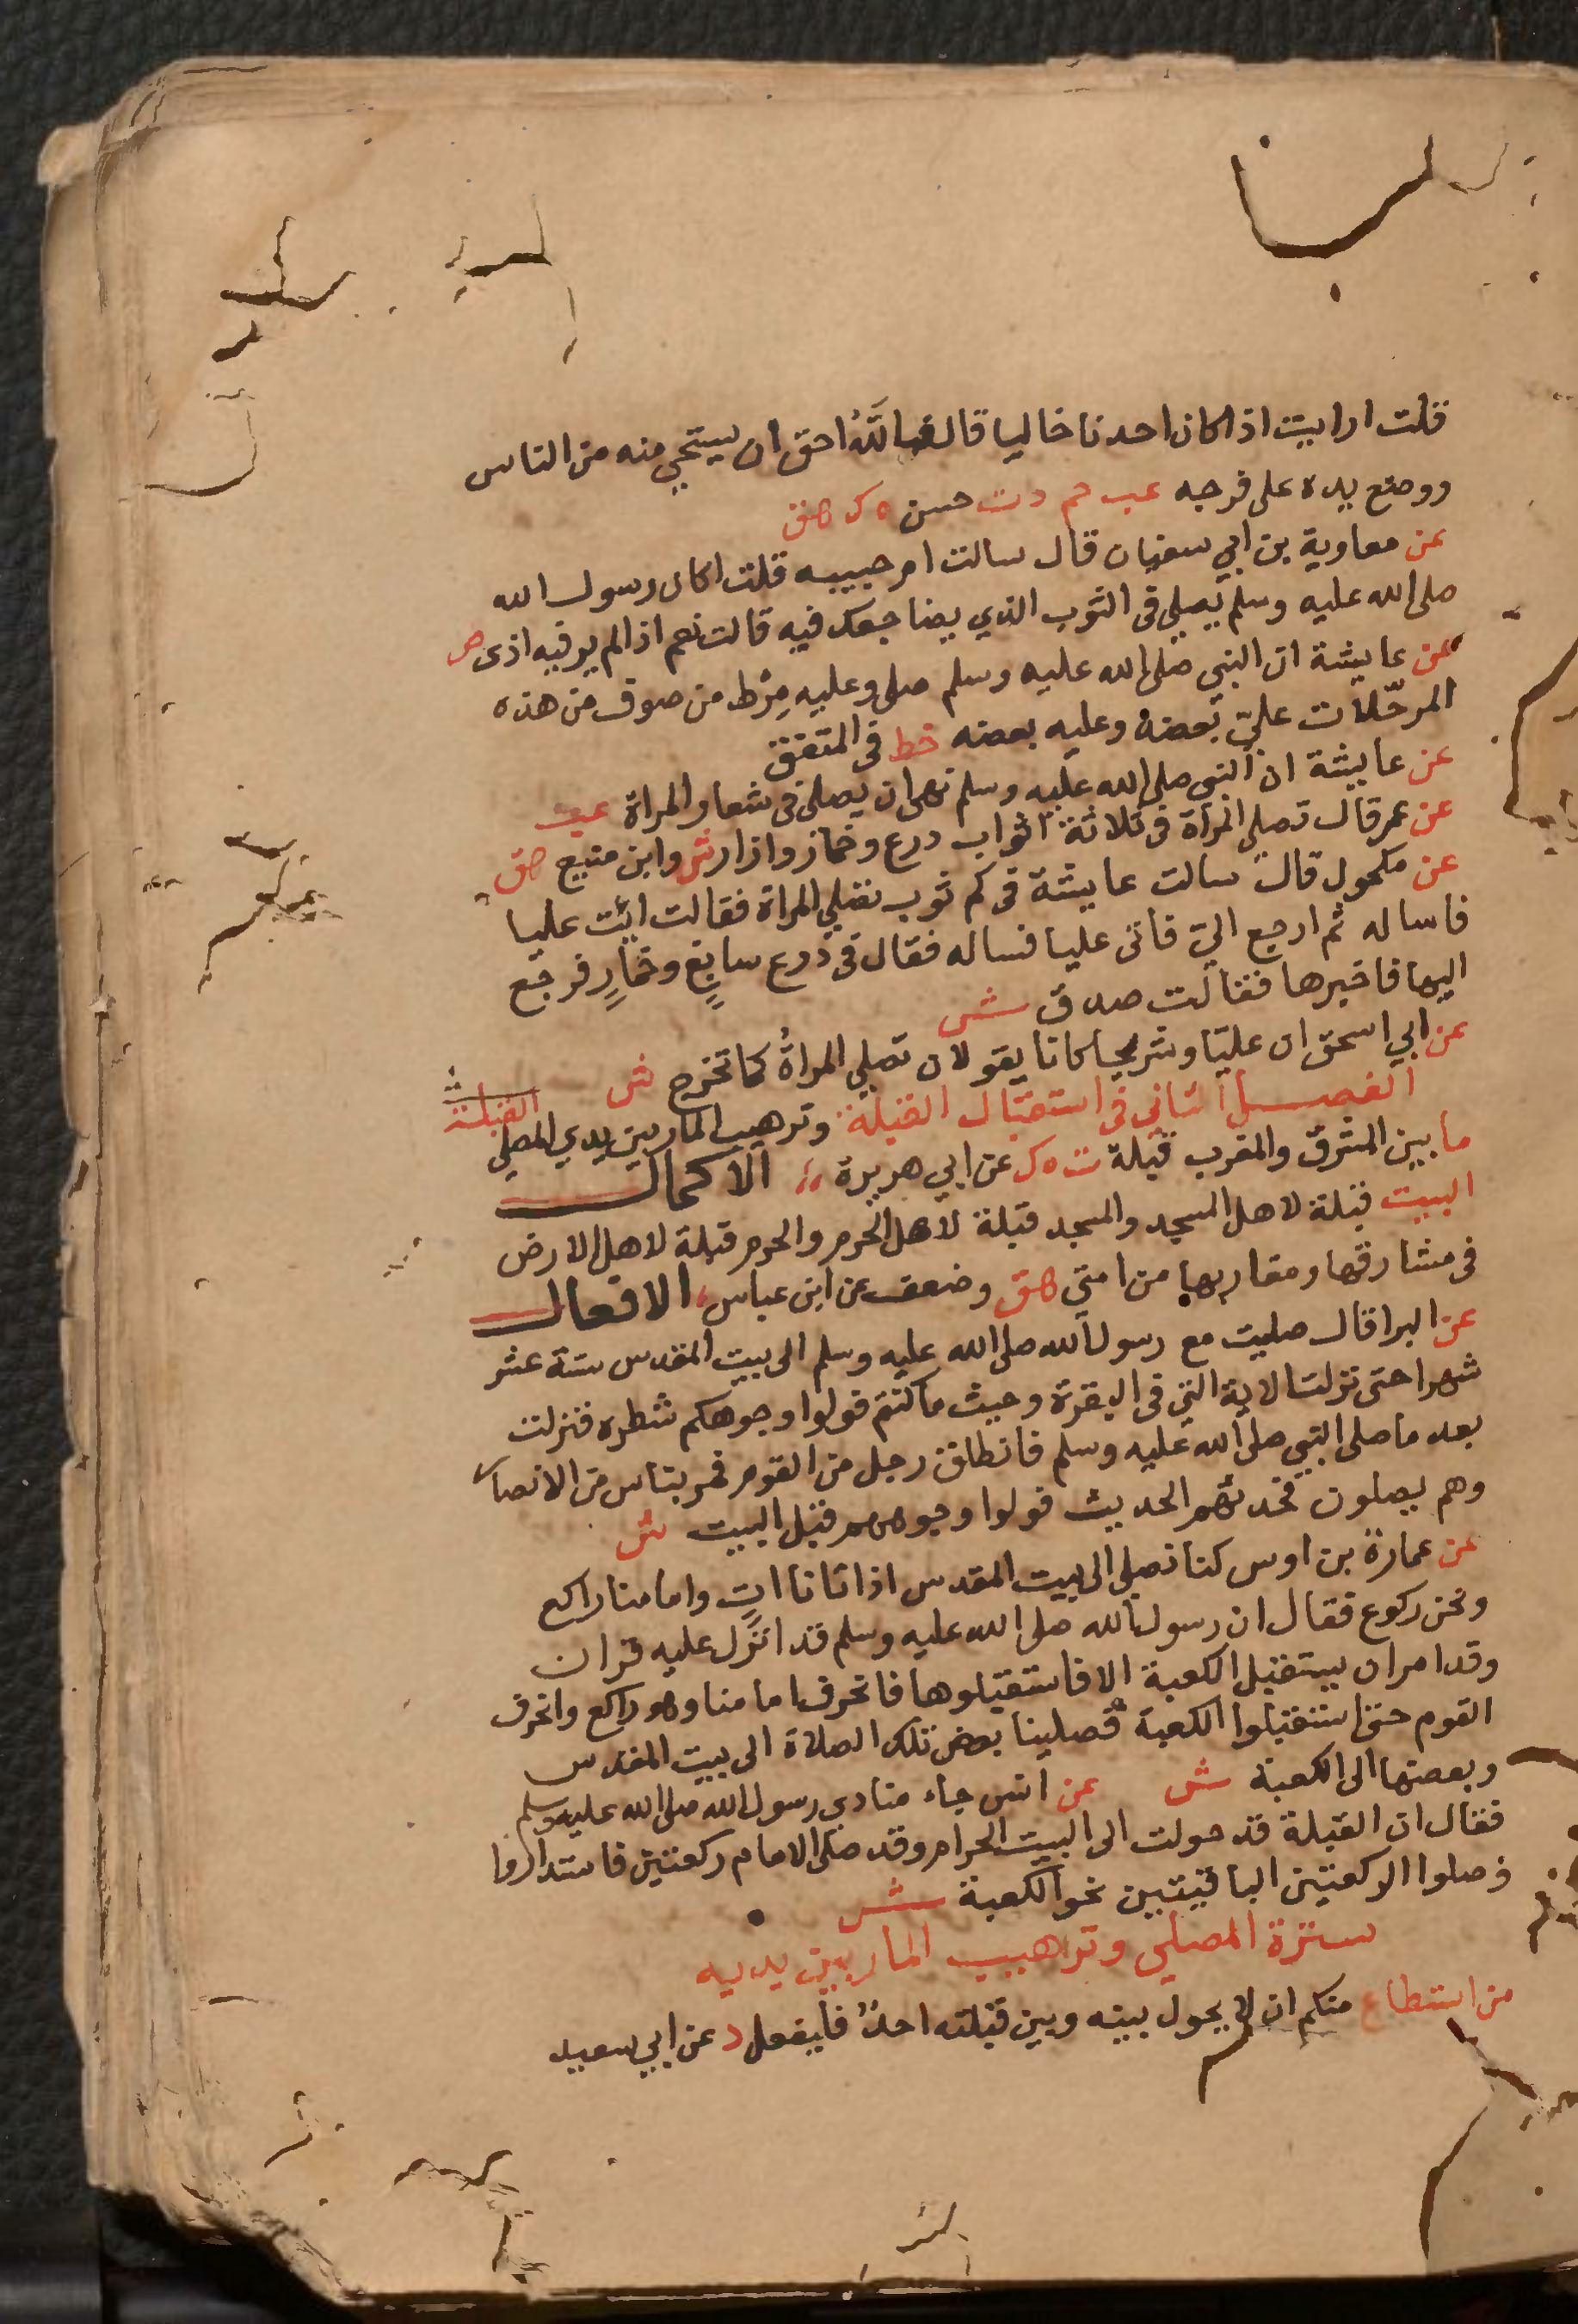 قلت ارايت اذا كان احدنا خاليا قال فالله احق ان يستحي منه من الناس
ووضع يده على فرجه عب حم د ت حسن ه ك هق
عن معاوية بن ابي سفيان قال سالت ام حبيبه قلت اكان رسول الله
صلى الله عليه وسلم يصلي في الثوب الذي يضاجعك فيه قالت نعم اذا لم ير فيه اذى ص
عن عايشة ان النبي صلى الله عليه وسلم صلى وعليه مِرْط من صوف من هذه
المرحّلات عليّ بعضه وعليه بعضه خط في المتفق
عن عايشة ان النبي صلى الله عليه وسلم نهى ان يصلى في شعار المراة عب
عن عمر قال تصلي المراة في ثلاثة اثواب درع وخمار وازار ش وابن منيع هق
عن مكحول قال سالت عايشة في كم ثوب تصلي المراة فقالت ائت عليا
فاساله ثم ارجع اليّ فاتى عليا فساله فقال في درع سابغٍ وخمارٍ فرجع
اليها فاخبرها فقالت صدق ش
عن ابي اسحق ان عليّا وشريحا كانا يقولان تصلي المراةُ كما تخرج ش
الفصل الثاني في استقبال القبلة وترهيب المار بين يدي المصلي القبلة
ما بين المشرق والمغرب قبلة ت ه ك عن ابي هريرة الاكمال
البيت قبلة لاهل المسجد والمسجد قبلة لاهل الحرم والحرم قبلة لاهل الارض
في مشارقها ومغاربها من امتي هق وضعف عن ابن عباس الافعال
عن البرا قال صليت مع رسول الله صلى الله عليه وسلم الى بيت المقدس ستة عشر
شهرا حتى نزلت الاية التي في البقرة وحيث ما كنتم فولوا وجوهكم شطره فنزلت
بعد ما صلى النبي صلى الله عليه وسلم فانطلق رجل من القوم فمر بناس من الانصار
وهم يصلون فحدثهم الحديث فولوا وجوههم قبل البيت ش
عن عمارة بن اوس كنا نصلي الى بيت المقدس اذ اتانا اتٍ وامامنا راكع
ونحن ركوع فقال ان رسول الله صلى الله عليه وسلم قد انزل عليه قران
وقد امر ان يستقبل الكعبة الا فاستقبلوها فانحرف امامنا وهو راكع وانحرف
القوم حتى استقبلوا الكعبة فصلينا بعض تلك الصلاة الى بيت المقدس
وبعضها الى الكعبة ش عن انس جاء منادي رسول الله صلى الله عليه وسلم
فقال ان القبلة قد حولت الى البيت الحرام وقد صلى الامام ركعتين فاستداروا
فصلوا الركعتين الباقيتين نحو الكعبة ش
سترة المصلي وترهيب المار بين يديه
من استطاع منكم ان لا يحول بينه وبين قبلته احدٌ فليفعل د عن ابي سعيد